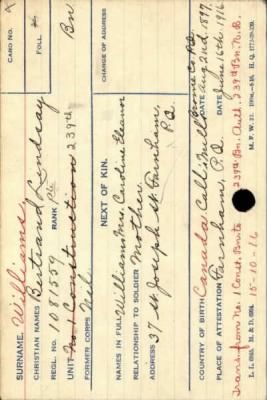 CARD NO.
FOLL.
SURNAME Williams,
CHRISTIAN NAMES Bertrand Lindsay
REGL. NO. 1081559 RANK Pte
UNIT No 1 Construction 239th Bn
FORMER CORPS Nil.
NEXT OF KIN.
CHANGE OF ADDRESS
NAMES IN FULL Williams Mrs. Caroline Eleanor
RELATIONSHIP TO SOLDIER Mother
ADDRESS 37 St Joseph St Farnham,
P.Q.
COUNTRY OF BIRTH Canada Call. Mills Brome Co P.Q. DATE Aug 2nd. 1897
PLACE OF ATTESTATION Farnham, P.Q. DATE June 16th 1916
Trans from No. 1 Const. Batt. 239th Bn. Auth. 239th Bn. N.B.
15-10-16
L. L. 6265. H. & D. 6994. M. F. W. 21.